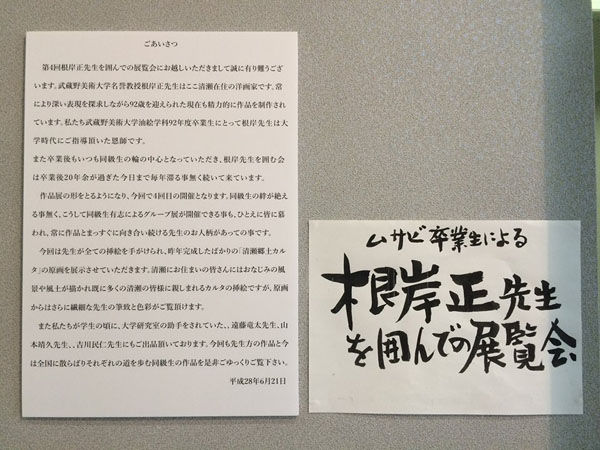 ごあいさつ
第4回根岸正先生を囲んでの展覧会にお越しいただきまして誠に有り難うござ
います。武蔵野美術大学名誉教授根岸正先生はここ清瀬在住の洋画家です。常
により深い表現を探求しながら92歳を迎えられた現在も精力的に作品を制作され
ています。私たち武蔵野美術大学油絵学科92年度卒業生にとって根岸先生は大
学時代にご指導頂いた恩師です。
また卒業後もいつも同級生の輪の中心となっていただき、根岸先生を囲む会
は卒業後20年余が過ぎた今日まで毎年滞る事無く続いて来ています。
作品展の形をとるようになり、今回で4回目の開催となります。同級生の絆が絶え
る事無く、こうして同級生有志によるグループ展が開催できる事も、ひとえに皆に慕
われ、常に作品とまっすぐに向き合い続ける先生のお人柄があっての事です。
今回は先生が全ての挿絵を手がけられ、昨年完成したばかりの「清瀬郷土カル
タ」の原画を展示させていただきます。清瀬にお住まいの皆さんにはおなじみの風
景や風土が描かれ既に多くの清瀬の皆様に親しまれるカルタの挿絵ですが、原画
からはさらに繊細な先生の筆致と色彩がご覧頂けます。
また私たちが学生の頃に、大学研究室の助手をされていた、、遠藤竜太先生、山
本靖久先生、、吉川民仁先生にもご出品頂いております。今回も先生方の作品と今
は全国に散らばりそれぞれの道を歩む同級生の作品を是非ごゆっくりご覧下さい。
平成28年6月21日
ムサビ卒業生による
根岸正先生
を囲んでの展覧会